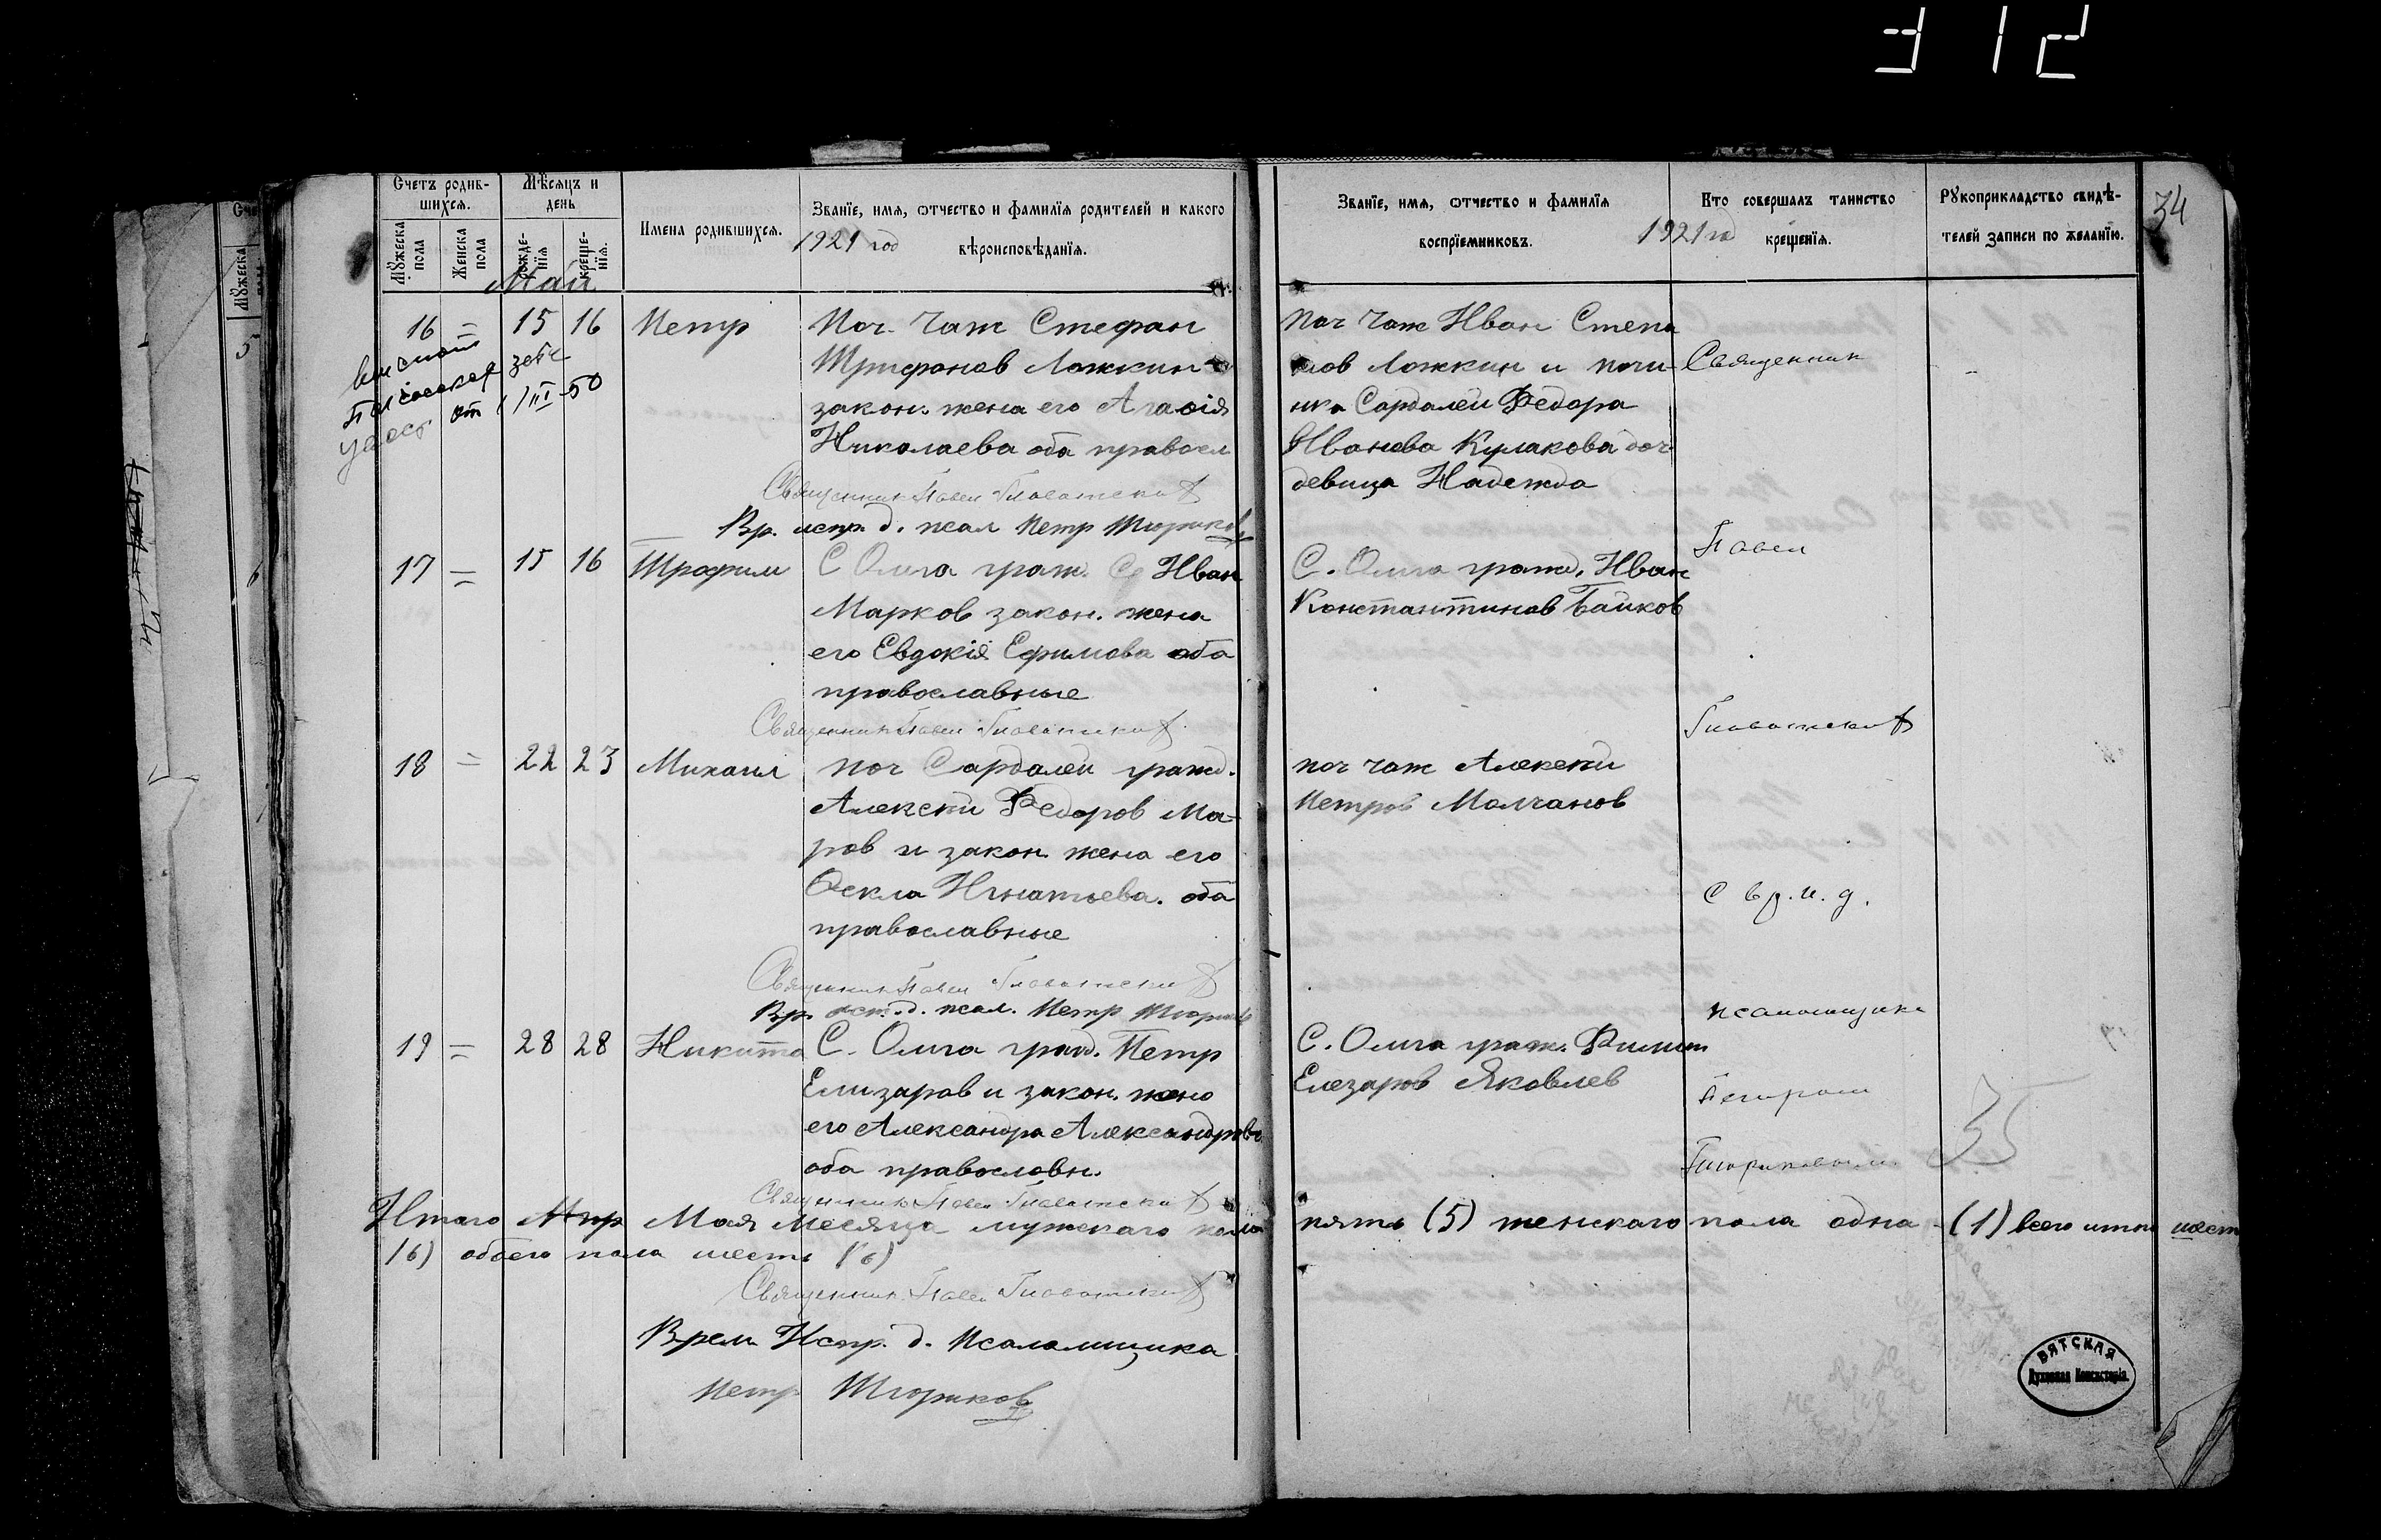 312
34
Счетъ родив-
шихся.
Мѣсяцъ и
день
Мужеска
пола
Женска
пола
рожде-
нія
креще-
нія.
Имена родившихся.
Званіе, имя, отчество и фамилія родителей и какого
вѣроисповѣданія.
1921 год
Май
Званіе, имя, отчество и фамилія
воспріемниковъ.
1921 год
Кто совершалъ таинство
крещенія.
Рукоприкладство свидѣ-
телей записи по желанію.
16 = 15 16 Петр
Поч. Чаж Стефан
Трифонов Ложкин
закон. жена его Агафія
Николаева оба правосл
Священник Павел
Вр. испр. д. псал Петр Тюриков
от 1/III-50
Поч Чаж Иван Степа
нов Ложкин и почи-
нка Сардалей Федора
Иванова Кулакова доч
девица Надежда
Священник
Павел
17 = 15 16 Трофим
С Олига граж. Иван
Марков закон. жена
его Евдокія Ефимова оба
православные
Священник Павел
С. Олига гражд. Иван
Константинов Байков
18 = 22 23 Михаил
поч Сардалей гражд.
Алексей Федоров Ма-
ров и закон. жена его
Фекла Игнатьева. оба
православные
Священник Павел
Вр. исп. д. псал. Петр Тюриков
поч Чаж Алексей
Петров Молчанов
С вр. и. д.
псаломщика
19 = 28 28 Никита
С. Олига гражд. Петр
Елизаров и закон. жена
его Александра Александрова
оба православн.
Священник Павел
С. Олига граж. Филип
Елезаров Яковлев
Петром
Тюриковым
35
Итого Апр Мая месяца мужскаго пола пять (5) женскаго пола одна (1) всего итого шест
(6) обоего пола шесть (6)
Священник Павел
Врем. Испр. д. Псаломщика
Петр Тюриков
ВЯТСКАЯ
Духовная Консисторія.